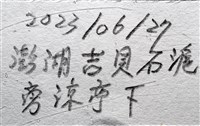 2023/06/27
澎湖吉貝石滬
旁涼亭下